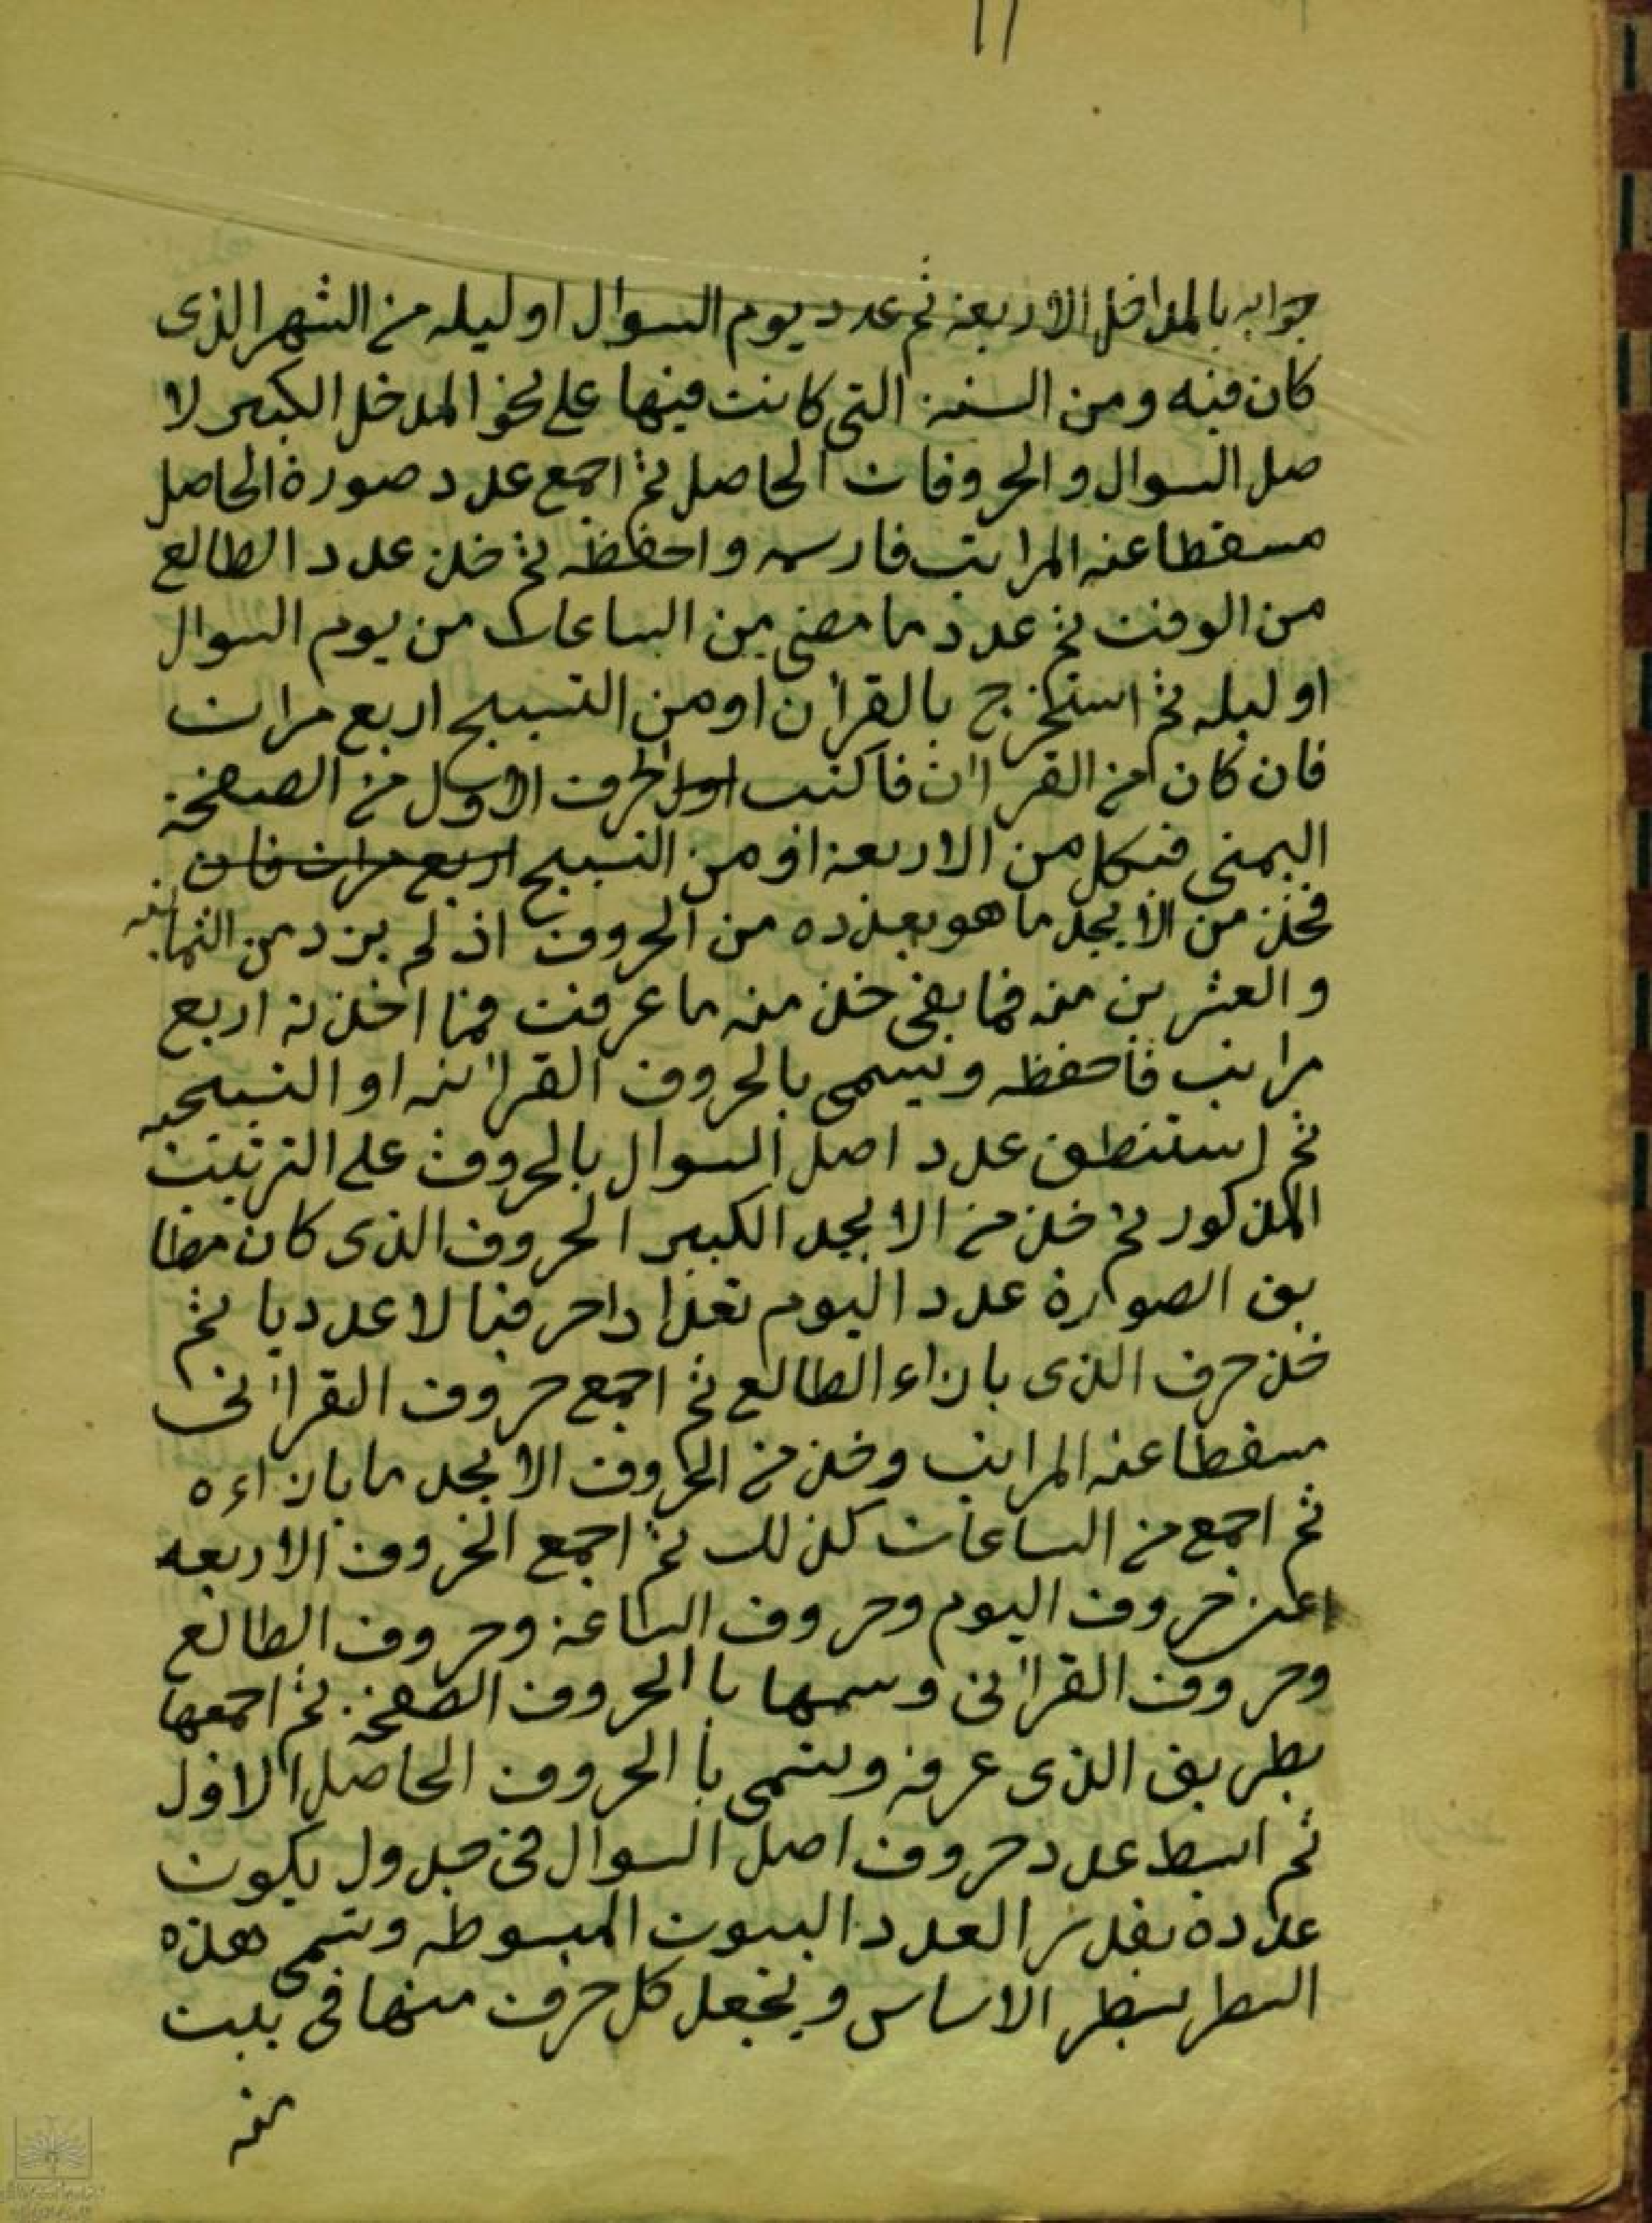 ۱۱
جوابه بالمداخل الاربعة ثم عدد يوم السوال او ليله من الشهر الذى
كان فيه ومن السنة التى كانت فيها على نحو المدخل الكبير لا
صل السوال والحروفات الحاصل ثم اجمع عدد صورة الحاصل
مسقطا عنه المراتب فارسمه واحفظه ثم خذ عدد الطالع
من الوقت ثم عدد ما مضى من الساعات من يوم السوال
او ليله ثم استخرج بالقران او من التسبيح اربع مرات
فان كان من القران فاكتب اول الحرف الاول من الصفحة
اليمنى فى كل من الاربعة او من التسبيح اربع مرات فان
فخذ من الابجد ما هو بعدده من الحروف اذ لم يزد من الثمانية
والعشرين منه فما بقى خذ منه ما عرفت فما اخذته اربع
مراتب فاحفظه ويسمى بالحروف القرانيه او التسبيحيه
ثم استنطق عدد اصل السوال بالحروف على الترتيب
المذكور ثم خذ من الابجد الكبير الحروف الذى كان مطا
بق الصورة عدد اليوم تعدادا حرفيا لا عدديا ثم
خذ حرف الذى بازاء الطالع ثم اجمع حروف القرانى
مسقطا عنه المراتب وخذ من الحروف الابجد ما بازاءه
ثم اجمع من الساعات كذلك ثم اجمع الحروف الاربعه
اعنى حروف اليوم وحروف الساعة وحروف الطالع
وحروف القرانى وسمها باالحروف الصفحة ثم اجمعها
بطريق الذى عرفة ويسمى باالحروف الحاصل الاول
ثم ابسط عدد حروف اصل السوال فى جدول يكون
عدده بقدر العدد البيوت المبسوطه ويسمى هذه
السطر بسطر الاساس ويجعل كل حرف منها فى بيت
منه